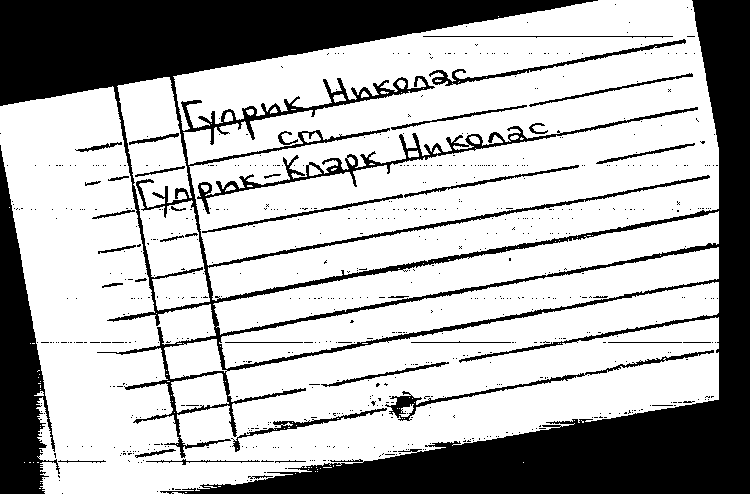 Гудрик, Николас
ст.
Гудрик-Кларк, Николас.